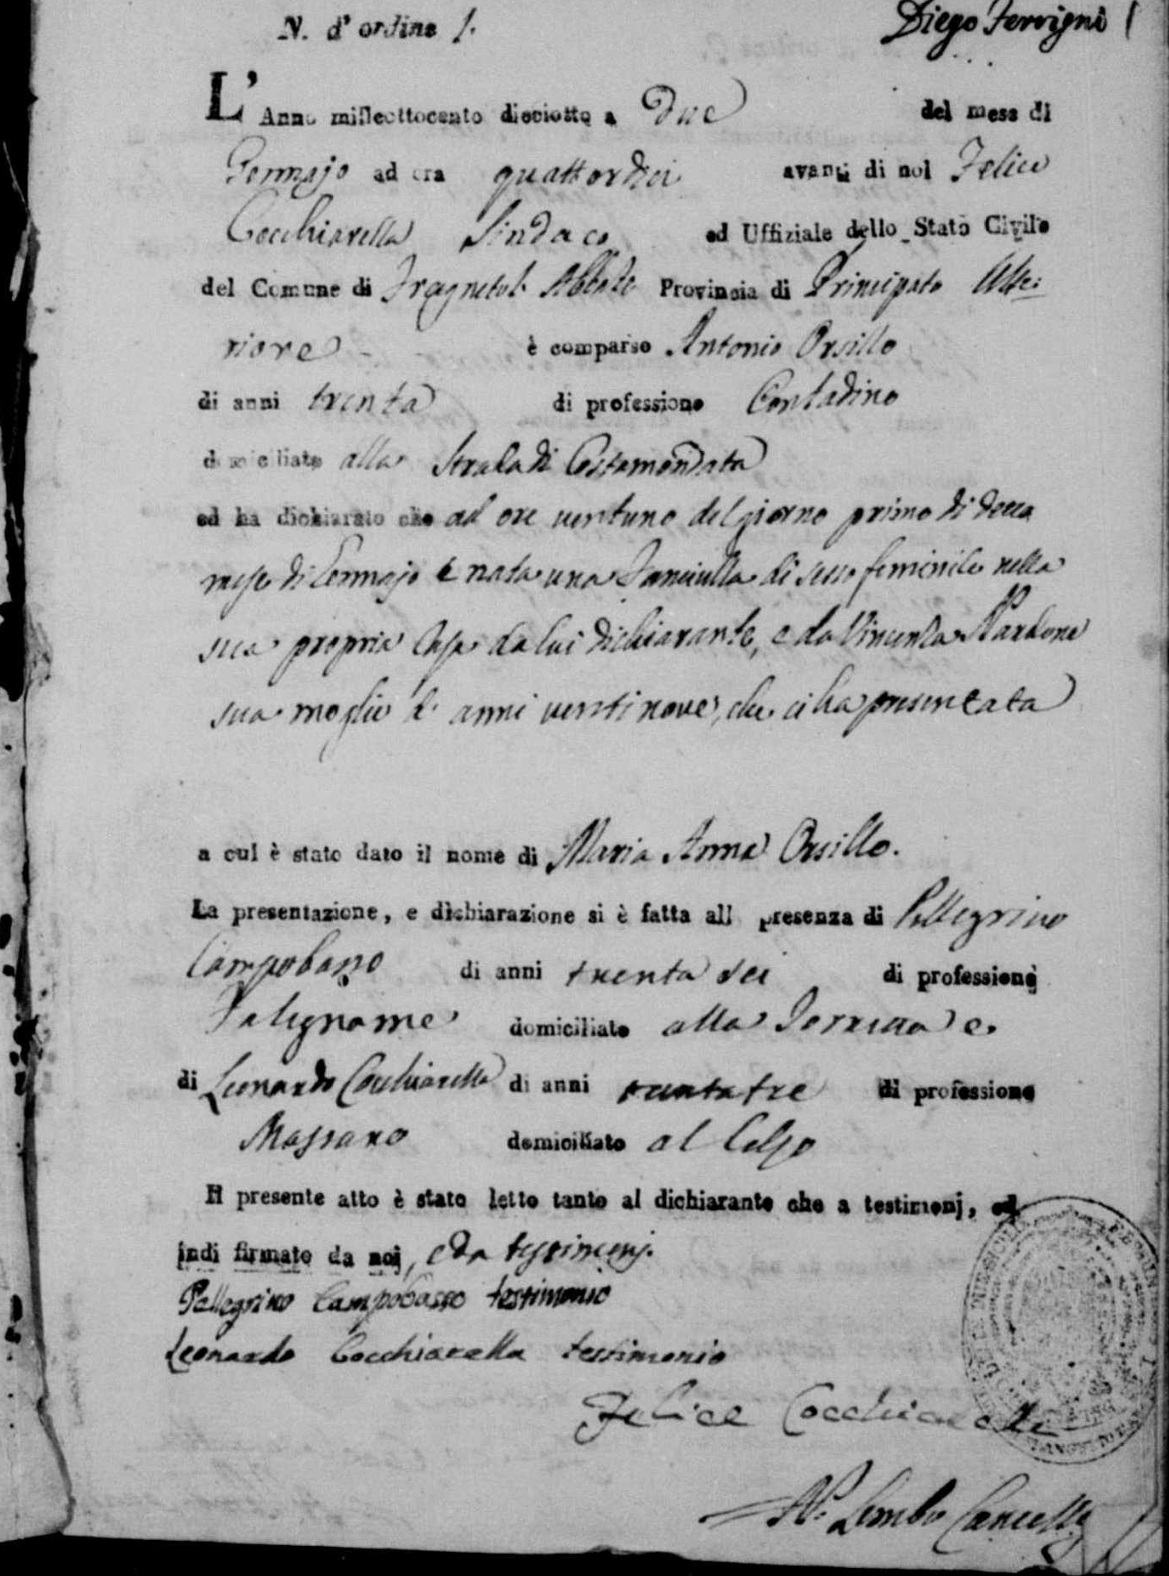 N. d'ordine 1.
Diego Ferrigni
L'Anno milleottocento dieciotto a Due del mese di
Gennajo ad ora quattordici avanti di noi Felice
Cocchiarella Sindaco ed Uffiziale dello Stato Civile
del Comune di Fragnetol' Abbate Provincia di Principato Ulte:
riore è comparso Antonio Orsillo
di anni trenta di professione Contadino
domiciliato alla Strada di Costamondata
ed ha dichiarato che ad ore ventuno del giorno primo di detto
mese di Gennajo è nata una Fanciulla di sesso feminile nella
sua propria Casa da lui dichiarante, e da Vincenza Nardone
sua moglie di anni ventinove, che ci ha presentata
a cui è stato dato il nome di Maria Anna Orsillo.
La presentazione, e dichiarazione si è fatta all presenza di Pellegrino
Campobasso di anni trenta sei di professione
Falegname domiciliato alla e
di Leonardo Cocchiarella di anni trentatre di professione
Massaro domiciliato al Celso
Il presente atto è stato letto tanto al dichiarante che a testimonj, ed
indi firmato da noi, e da testimonj.
Pellegrino Campobasso testimonio
Leonardo Cocchiarella testimonio
Felice Cocchiarella
Lembo Cancelle